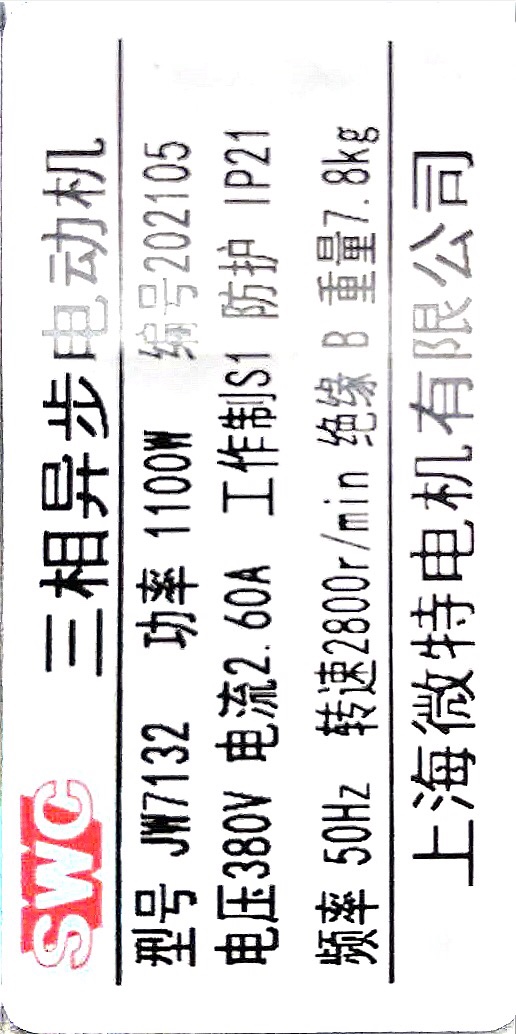 SWC 三相异步电动机
型号 JW7132 功率 1100W 编号202105
电压380V 电流2.60A 工作制S1 防护 IP21
频率 50Hz 转速2800r/min 绝缘 B 重量7.8kg
上海微特电机有限公司